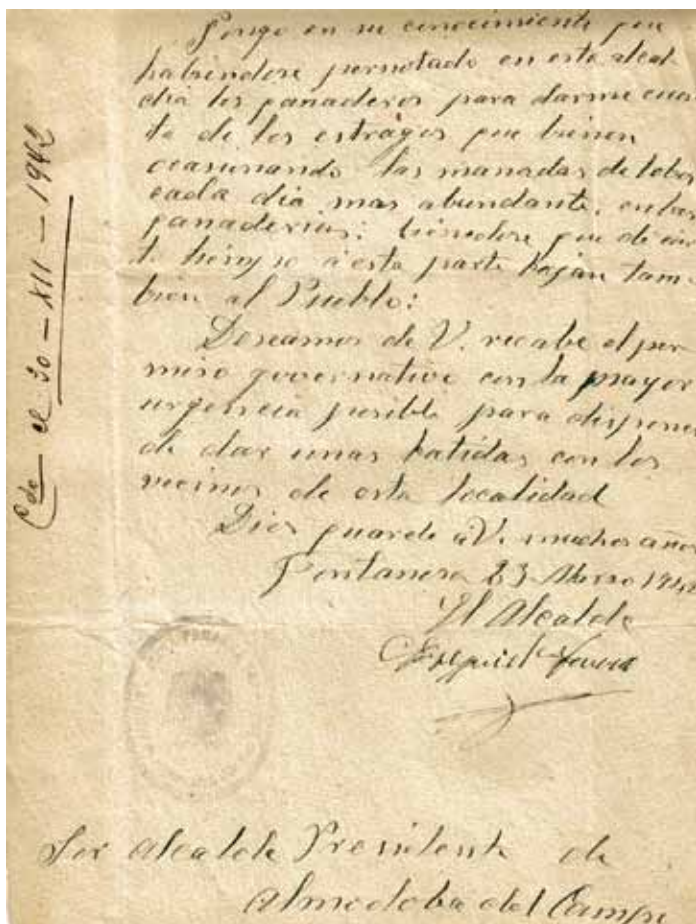 Pongo en su conocimiento que
habiendose pernotado en esta alcal
dia los ganaderos para darme cuen
ta de los estragos que bienen
ocasinando las manadas de lobos
cada dia mas abundante, en las
ganaderias: biendose que de cier
to tiempo a esta parte bajan tam
bien al Pueblo:
Deseamos de V. recabe el per
miso governativo con la mayor
urgencia posible para disponer
de dar unas batidas con los
vecinos de esta localidad
Dios guarde a V. muchos años
Fontanosa 23
El Alcalde
Sor Alcalde Presidente de
Almodoba del Campo
Cdo el 30-XII-1942